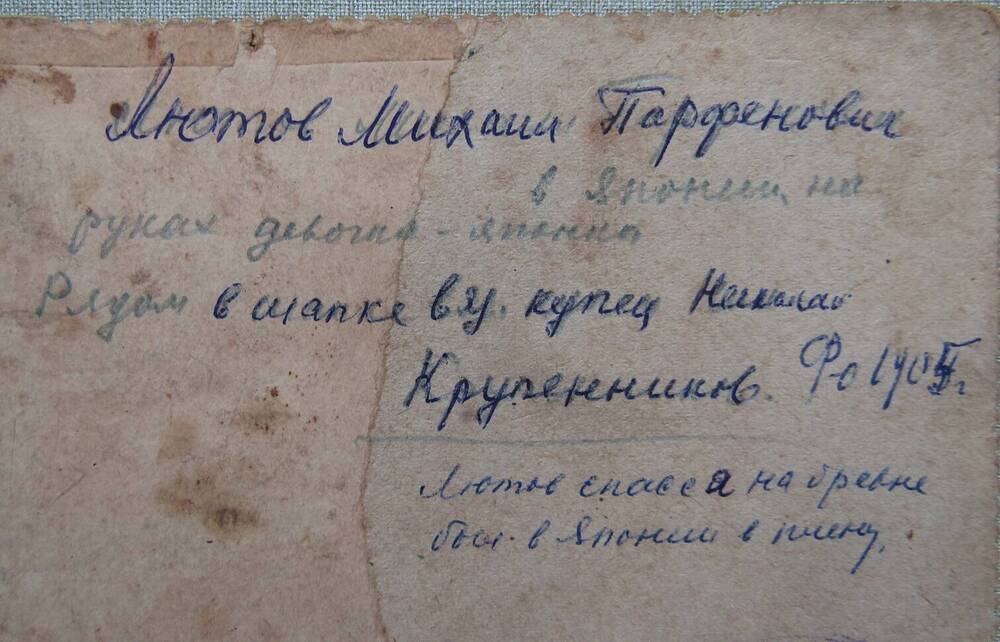 Лютов Михаил Парфенович
в Японии, на
руках девочка-японка
Рядом в шапке ВУ. купец Николай
Крупенников. Фо 190
Лютов спасся на бревне
был в Японии в плену.